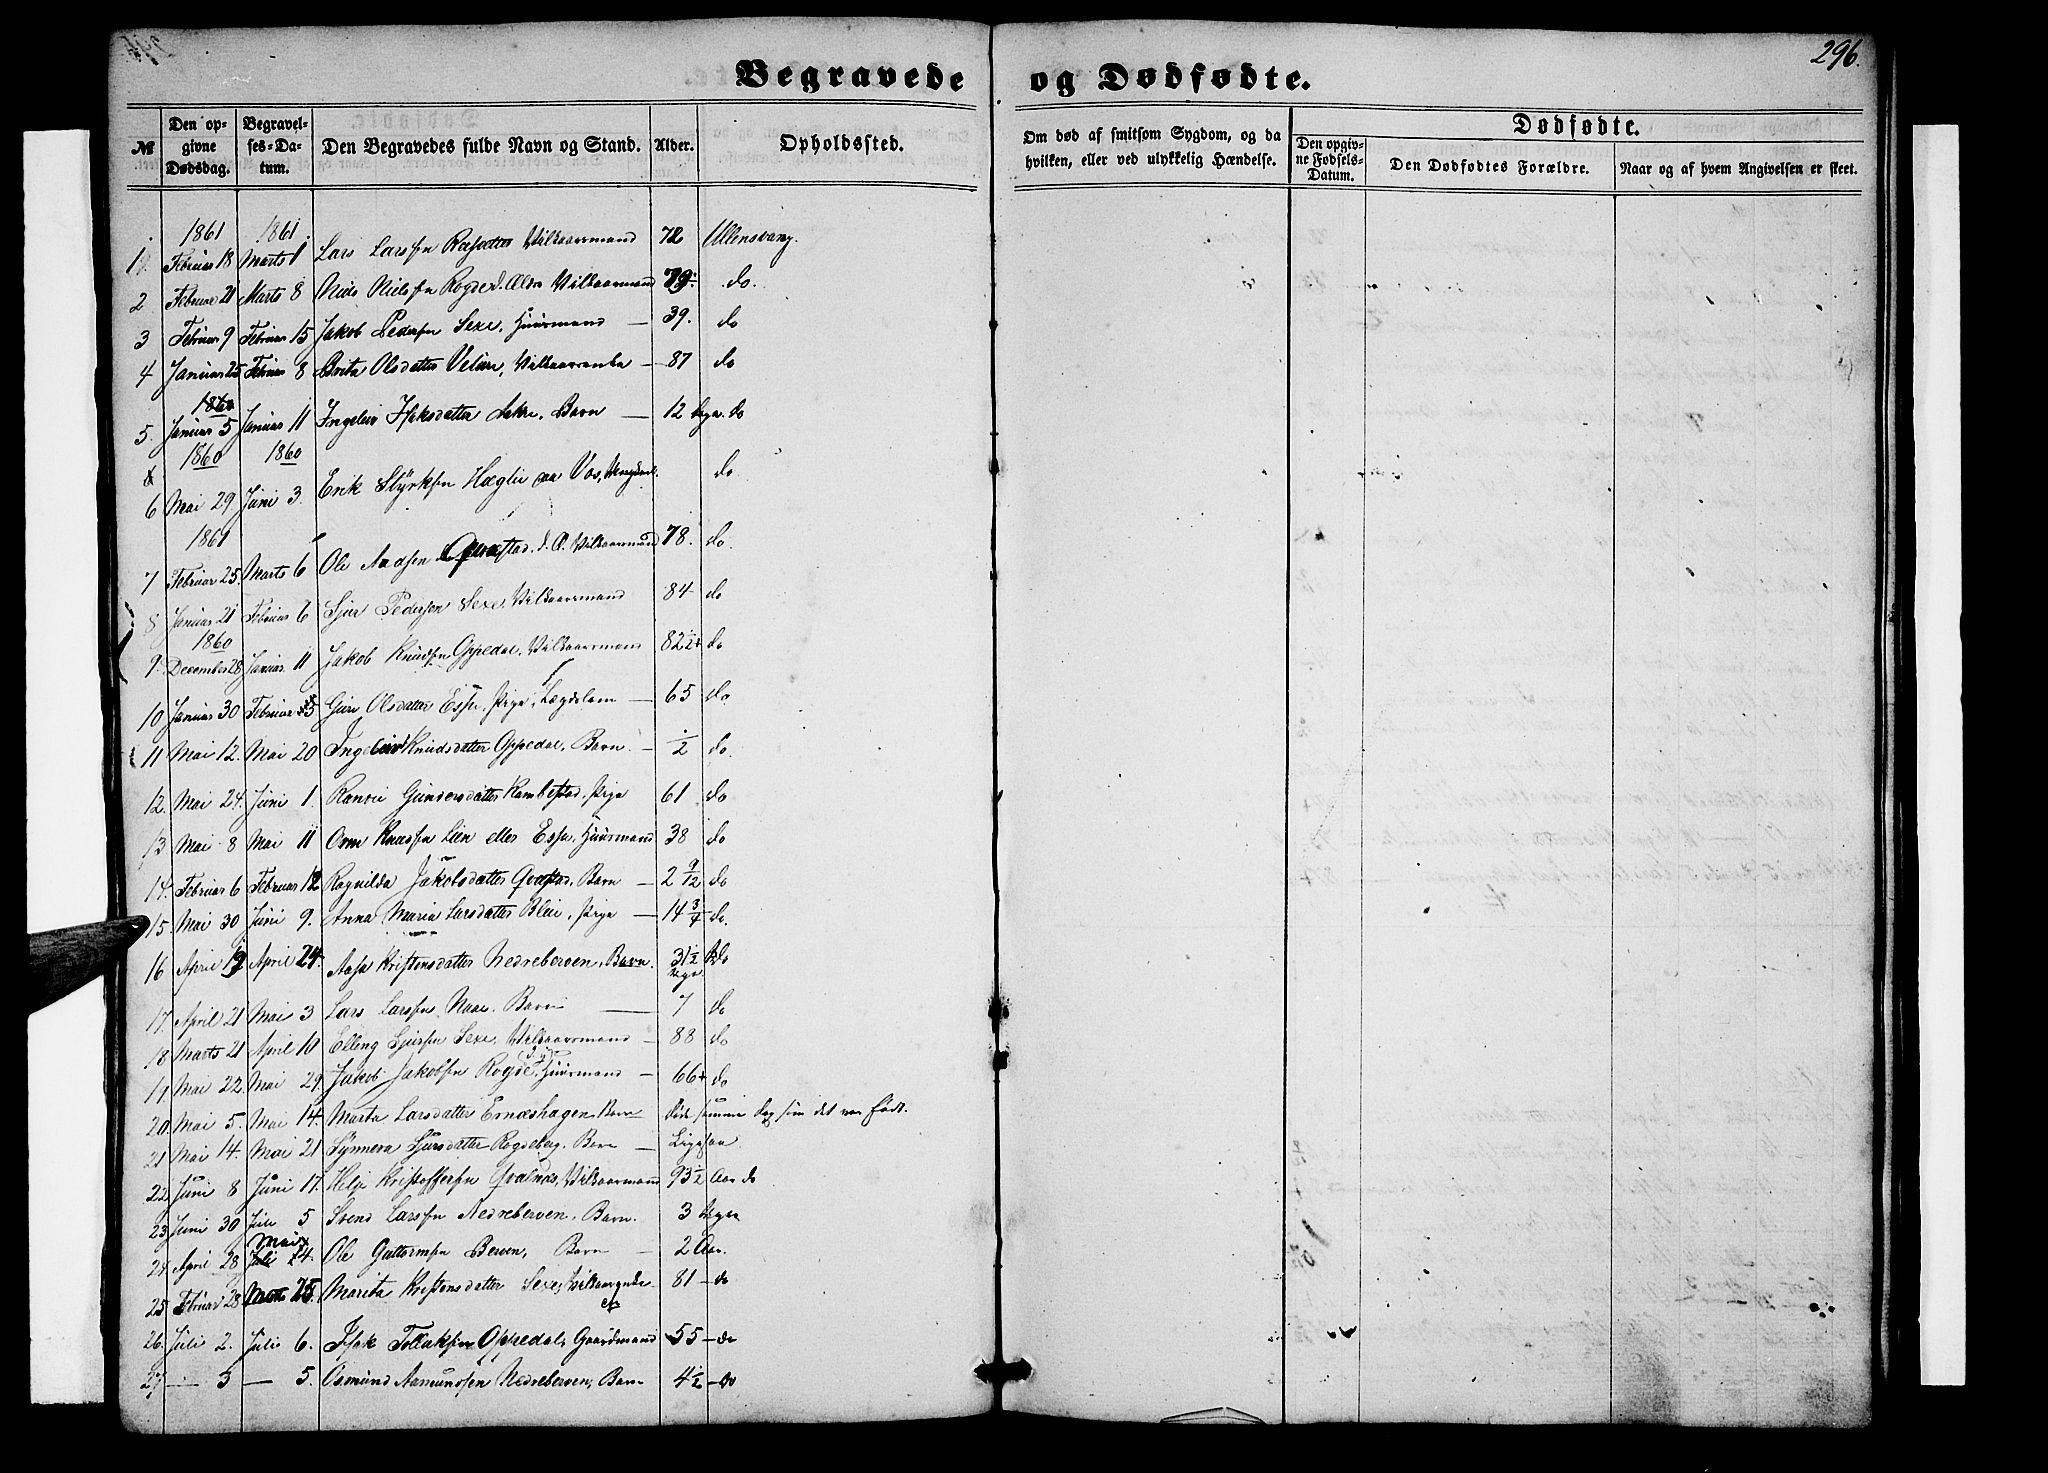 296.
Begravede og Dødfødte.
№
Den opgivne Dødsdag.
Begravelses-Datum.
Den Begravedes fulde Navn og Stand.
Alder.
Opholdssted.
Om død af smitsom Sygdom, og da hvilken, eller ved ulykkelig Hændelse.
Dødfødte.
Den opgivne Fødsels-Datum.
Den Dødfødtes Forældre.
Naar og af hvem Angivelsen er skeet.
1861 1861
1. Februar 18 Marts 1 Lars Larssen Vilkaarsmand 72 Ullensvang.
2 Februar 21 Marts 8 Niels Nielssen Rogde d. Ældre Vilkaarmand 79 do.
3 Februar 9 Februar 15 Jakob Pedersen Sexe, Huusmand — 39. do
4 Januar 25 Februar 8 Brita Olsdatter Vilkaarsenke — 87 do
5. Januar 5 Januar 11 Ingeleiv Isaksdatter Barn — 12 Dage do
1860 1860
6 Mai 29 Juni 3. Erik Styrksen Hæglie paa Vos, do
1861
7 Februar 25. Marts 6 Ole Aadsen Qvestad. d. Æ. Vilkaarmand 78. do.
8 Januar 21 Februar 6 Sjur Pedersen Sexe, Vilkaarsmand 84 do
1860
9. December 28 Januar 11 Jakob Knudsen Oppedal, Vilkaarsmand 82 1/2 do
10 Januar 30 Februar 5 Guri Olsdatter Espe, Pige, Lægdslem — 65 do
11 Mai 12. Mai 20 Ingeleiv Knudsdatter Oppedal, Barn. — 1/2 do.
12. Mai 24. Juni 1. Ranvei Gundersdatter Kambestad, Pige 61 do
13 Mai 8 Mai 11 Orm Knudsen Lien eller Espe, Huusmand 38 do
14. Februar 6 Februar 12 Ragnilda Jakobsdatter Qvestad, Barn — 2 9/12 do
15. Mai 30 Juni 9. Anna Maria Larsdatter Bleie, Pige — 14 3/4 do.
16 April 19 April 24. Aasa Kristensdatter Nedreberven, Barn. 3 1/2 Uger do
17. April 21 Mai 3 Lars Larssen Naae, Barn — 7 do
18 Marts 21 April 10 Elling Sjursen Sexe, Vilkaarsmand — 88 do
19. Mai 22. Mai 29. Jakob Jakobsen Rogde, Huusmand — 66 do
20. Mai 5. Mai 14. Marta Larsdatter Ernæshagen, Barn Døde samme Dag som det var født.
21 Mai 14. Mai 21 Synneva Sjursdatter Rogdeberg, Barn — Ligesaa
22 Juni 8 Juni 17. Helje Kristoffersen Qvalnæs, Vilkaarmand 93 1/2 Aar do
23 Juni 30 Juli 5 Svend Larssen Nedreberven, Barn. 3 Dage
24 April 28 Juli Mai 4. Ole Guttormsen Berven, Barn — 2 Aar.
25 Februar 28 Marts 25. Marita Kristensdatter Sexe, Vilkaarsenke 81 — do
26. Juli 2. Juli 6. Isak Tollaksen Oppedal, Gaardmand 55 — do
27 — 3 — 5. Osmund Aamundsen Nedreberven, Barn 4 1/2 — do